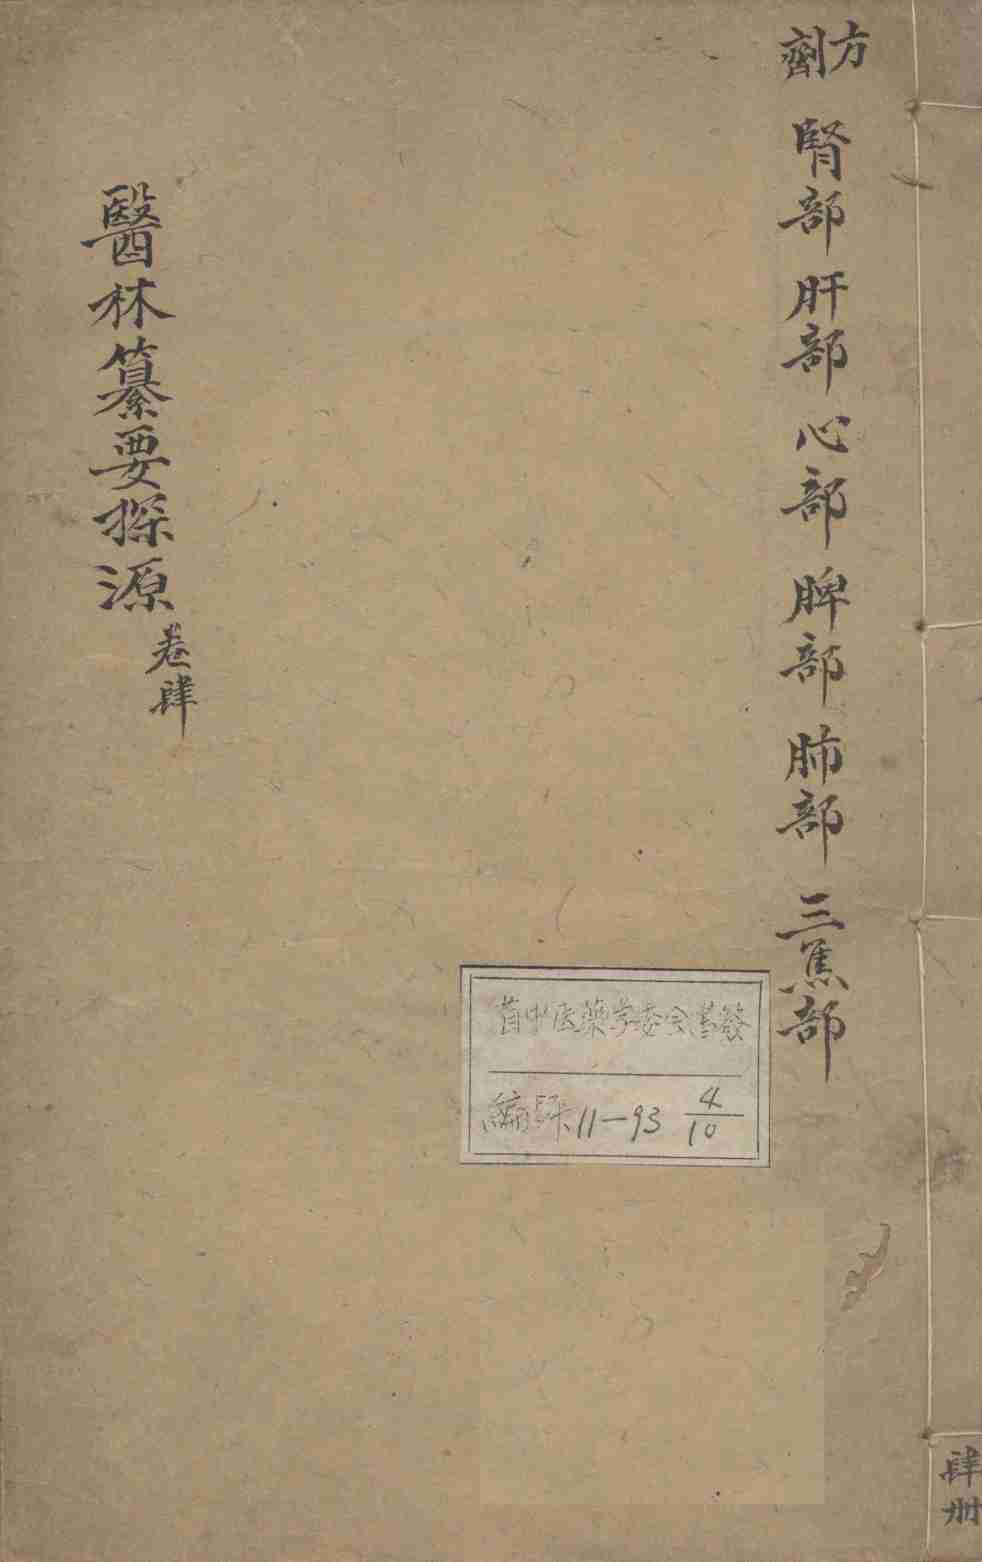 方劑 腎部 肝部 心部 脾部 肺部 三焦部
醫林纂要探源 卷肆
省中医藥学委会書籤
編號 11-93 4/10
肆册